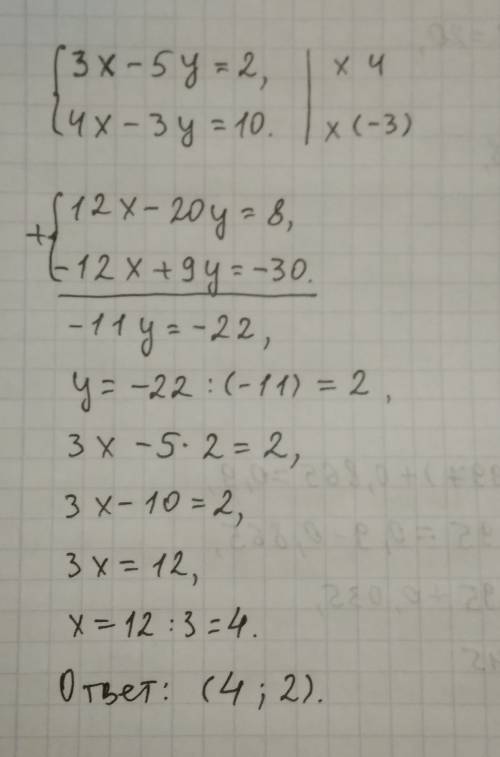 3x - 5y = 2, | x 4
4x - 3y = 10. | x (-3)
+ 12x - 20y = 8,
-12x + 9y = -30.
-11y = -22,
y = -22 : (-11) = 2,
3x - 5 · 2 = 2,
3x - 10 = 2,
3x = 12,
x = 12 : 3 = 4.
Ответ: (4 ; 2).